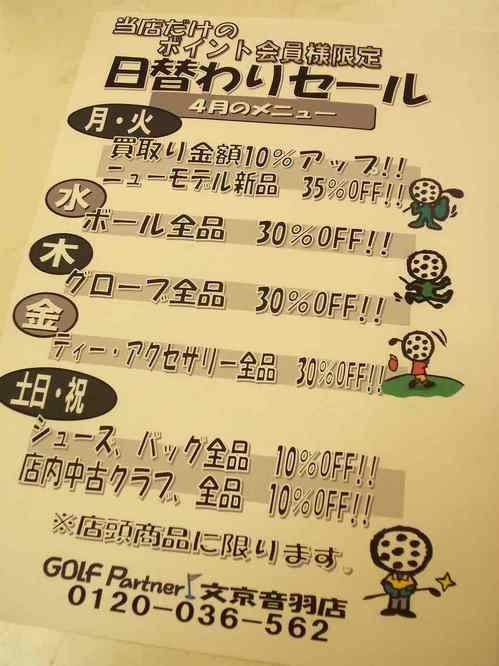 当店だけの
ポイント会員様限定
日替わりセール
4月のメニュー
月・火
買取り金額10%アップ!!
ニューモデル新品 35%OFF!!
水
ボール全品 30%OFF!!
木
グローブ全品 30%OFF!!
金
ティー・アクセサリー全品 30%OFF!!
土日・祝
シューズ、バッグ全品 10%OFF!!
店内中古クラブ、全品 10%OFF!!
※店頭商品に限ります。
GOLF Partner 文京音羽店
0120-036-562